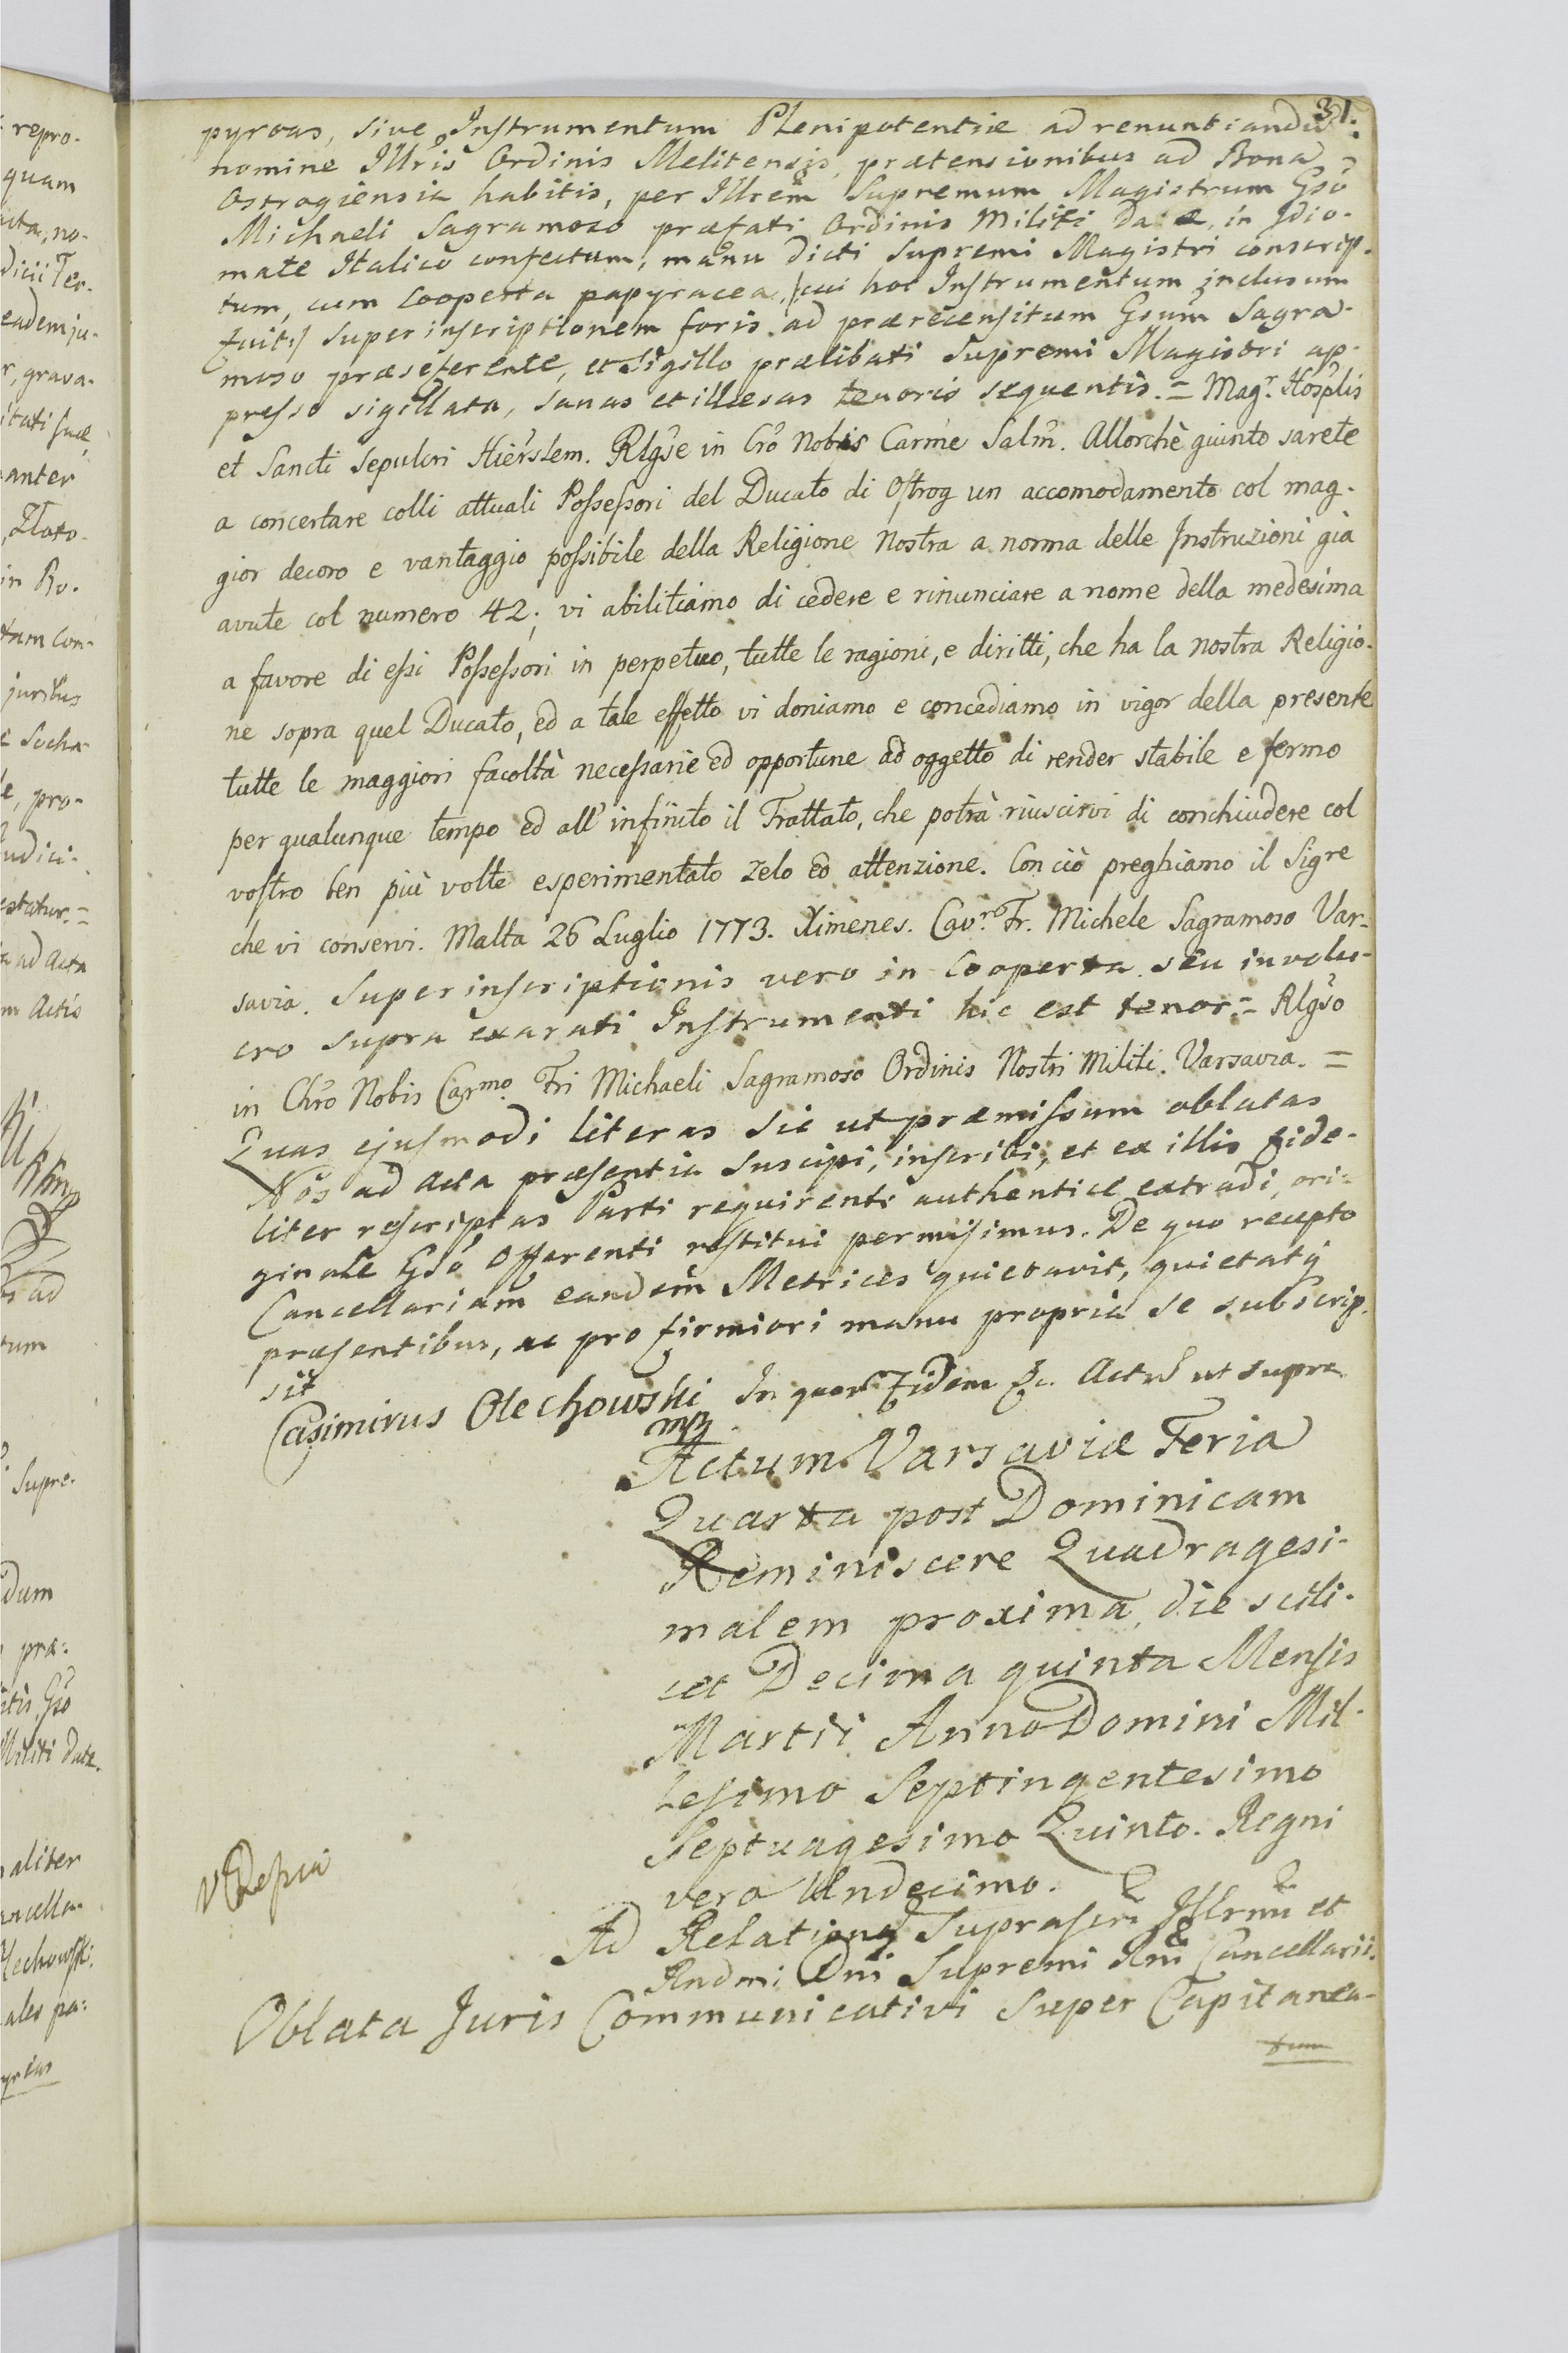 31.
pyreas, sive Instrumentum Plenipotentiæ ad renuntiandū
nomine Illris Ordinis Melitensis, prætensionibus ad Bona
Ostrogiensia habitis, per Illrem Supremum Magistrum Gsō
Michaeli Sagramoso præfati Ordinis Militi Datæ, in Idio-
mate Italico confectum, manu dicti Supremi Magistri conscrip-
tum, cum Cooperta papyracea, /:cui hoc Instrumentum inclusum
fuit:/ superinscriptionem foris ad prærecensitum Gsum Sagra-
moso præseferente, et Sigillo prælibati Supremi Magistri ap-
presso sigillata, sanas et illæsas tenoris sequentis. = Magr. Hosplis
et Sancti Sepulcri Hierslem. Rlgse in Cro Nobis Carme Salm. Allorchè giunto sarete
a concertare colli attuali Possessori del Ducato di Ostrog un accomodamento col mag-
gior decoro e vantaggio possibile della Religione Nostra a norma delle Instruzioni già
avute col numero 42; vi abilitiamo di cedere e rinunciare a nome della medesima
a favore di essi Possessori in perpetuo, tutte le ragioni, e diritti, che ha la nostra Religio-
ne sopra quel Ducato, ed a tale effetto vi doniamo e concediamo in vigor della presente
tutte le maggiori facoltà necessarie ed opportune ad oggetto di render stabile e fermo
per qualunque tempo ed all' infinito il Trattato, che potrà riuscirvi di conchiudere col
vostro ben più volte esperimentato zelo ed attenzione. Con ciò preghiamo il Sigre
che vi conservi. Malta 26 Luglio 1773. Ximenes. Cavr. Fr. Michele Sagramoso Var-
savia. Superinscriptionis vero in Cooperta seu involu-
cro supra exarati Instrumenti hic est tenor = Rlgso
in Chro Nobis Carmo. Fri Michaeli Sagramoso Ordinis Nostri Militi. Varsavia. =
Quas ejusmodi literas sic ut præmissum oblatas
Nos ad Acta præsentia suscipi, inscribi, et ex illis fide-
liter rescriptas Parti requirenti authentice extradi, ori-
ginale Gso Offerenti restitui permisimus. De quo recepto
Cancellariam eandem Metrices quietavit, quietatq
præsentibus, ac pro firmiori manu propria se subscrip-
sit
Casimirus Olechowski In quor Fidem &c. Actū ut supra
mp
Actum Varsaviæ Feria
Quarta post Dominicam
Reminiscere Quadragesi-
malem proxima, die scili-
cet Decima quinta Mensis
Martii Anno Domini Mil-
lesimo Septingentesimo
Septuagesimo Quinto. Regni
vero Undecimo.
Ad Relationē Suprascri Illrmi et
Rndmi Dni Supremi Rni Cancellarii.
Oblata Juris Communicativi super Capitanea-
tum